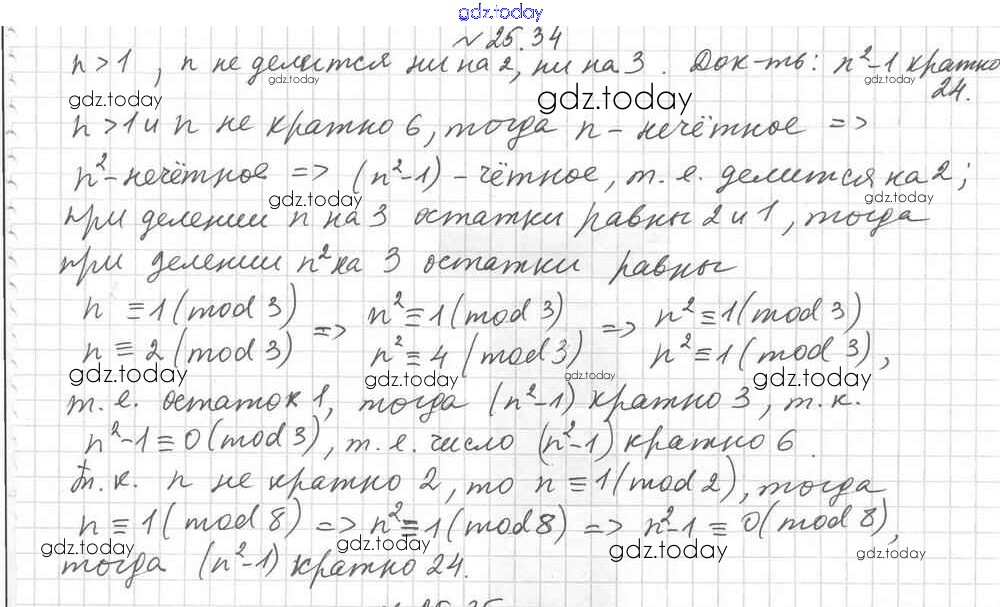 gdz.today
№ 25.34
n > 1, n не делится ни на 2, ни на 3. Док-ть: n²-1 кратно
24.
gdz.today gdz.today gdz.today gdz.today
n > 1 и n не кратно 6, тогда n - нечётное =>
n² - нечётное => (n²-1) - чётное, т.е. делится на 2;
gdz.today gdz.today
при делении n на 3 остатки равны 2 и 1, тогда
при делении n² на 3 остатки равны
n ≡ 1 (mod 3) => n² ≡ 1 (mod 3) => n² ≡ 1 (mod 3)
n ≡ 2 (mod 3) n² ≡ 4 (mod 3) n² ≡ 1 (mod 3),
gdz.today gdz.today gdz.today gdz.today
т.е. остаток 1, тогда (n²-1) кратно 3, т.к.
n²-1 ≡ 0 (mod 3), т.е. число (n²-1) кратно 6.
Т.к. n не кратно 2, то n ≡ 1 (mod 2), тогда
n ≡ 1 (mod 8) => n² ≡ 1 (mod 8) => n²-1 ≡ 0 (mod 8),
gdz.today gdz.today gdz.today gdz.today
тогда (n²-1) кратно 24.